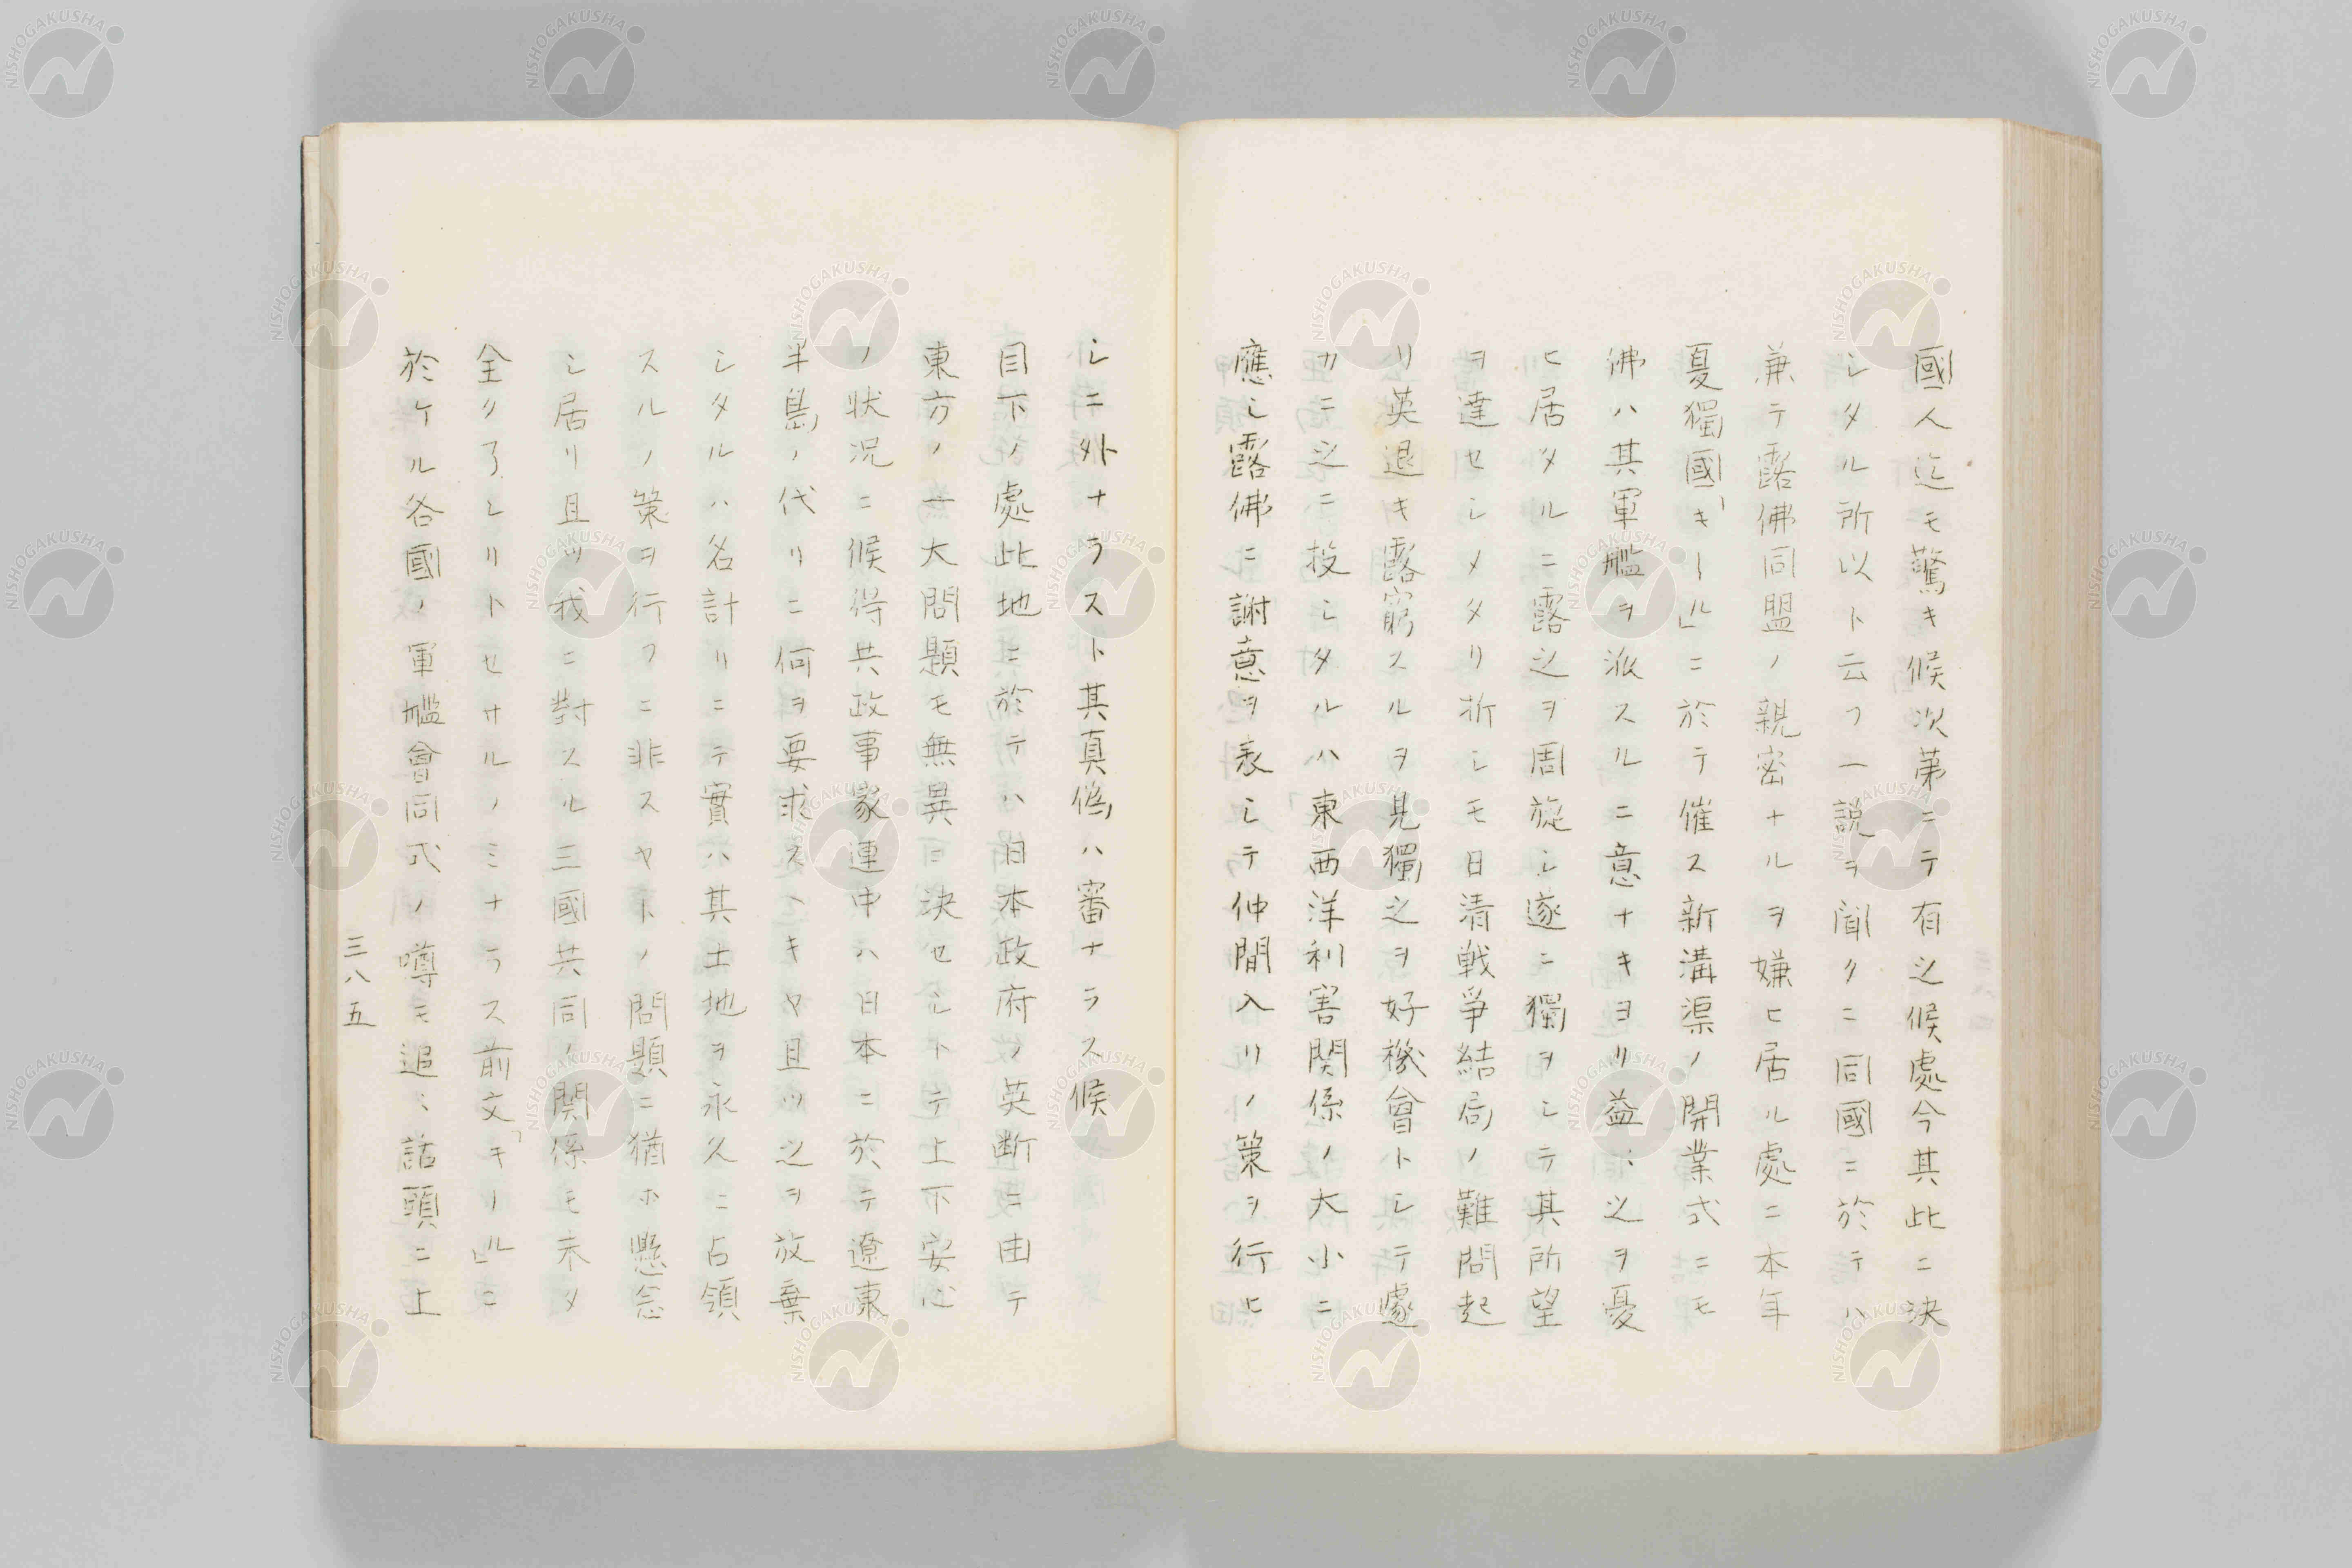 國人迄モ驚キ候次第ニテ有之候處今其此ニ決
シタル所以ト云フ一説ヲ聞クニ同國ニ於テハ
兼テ露佛同盟ノ親密ナルヲ嫌ヒ居ル處ニ本年
夏獨國「キール」ニ於テ催ス新溝渠ノ開業式ニモ
佛ハ其軍艦ヲ派スルニ意ナキヨリ益〻之ヲ憂
ヒ居タルニ露之ヲ周旋シ遂ニ獨ヲシテ其所望
ヲ達セシメタリ折シモ日清戦爭結局ノ難問起
リ英退キ露窮スルヲ見獨之ヲ好機會トシテ遽
カニ之ニ投シタルハ東西洋利害関係ノ大小ニ
應シ露佛ニ謝意ヲ表シテ仲間入リノ策ヲ行ヒ
シニ外ナラスト其真偽ハ審ナラス候
目下ノ處此地ニ於テハ日本政府ノ英断ニ由テ
東方ノ一大問題モ無異ニ決セシトテ上下安心
ノ状況ニ候得共政事家連中ハ日本ニ於テ遼東
半島ノ代リニ何ヲ要求スヘキヤ且ツ之ヲ放棄
シタルハ名計リニテ實ハ其土地ヲ永久ニ占領
スルノ策ヲ行フニ非スヤトノ問題ニ猶ホ懸念
シ居リ且ツ我ニ對スル三國共同ノ関係モ未タ
全ク了レリトセサルノミナラス前文「キール」ニ
於ケル各國ノ軍艦會同式ノ噂モ追〻話頭ニ上
三八五
NISHOGAKUSHA